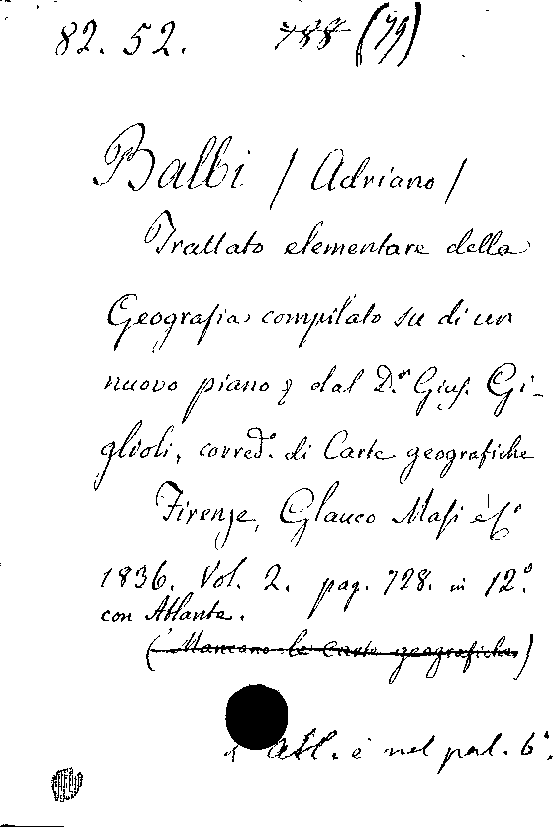 82. 52. 788 (79)
Balbi / Adriano /
Trattato elementare della
Geografia compilato su di un
nuovo piano & dal D.or Gius. Gi-
glioli, corred.o di Carte geografiche
Firenze, Glauco Masi e C.o
1836. Vol. 2. pag. 728. in 12.o
con Atlante.
(Mancano le Carte geografiche)
Atl. è nel pal. 6.o